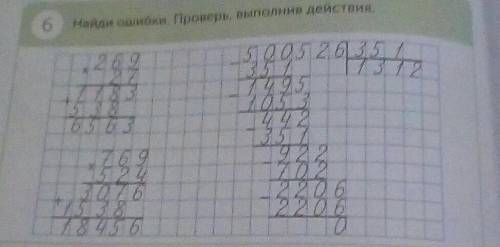 6 Найди ошибки. Проверь, выполнив действия.
× 269
27
+ 1183
538
6563
× 769
524
+ 3076
1538
18456
- 500526 | 351
351 1312
- 1495
1053
- 442
351
- 922
102
- 2206
2206
0